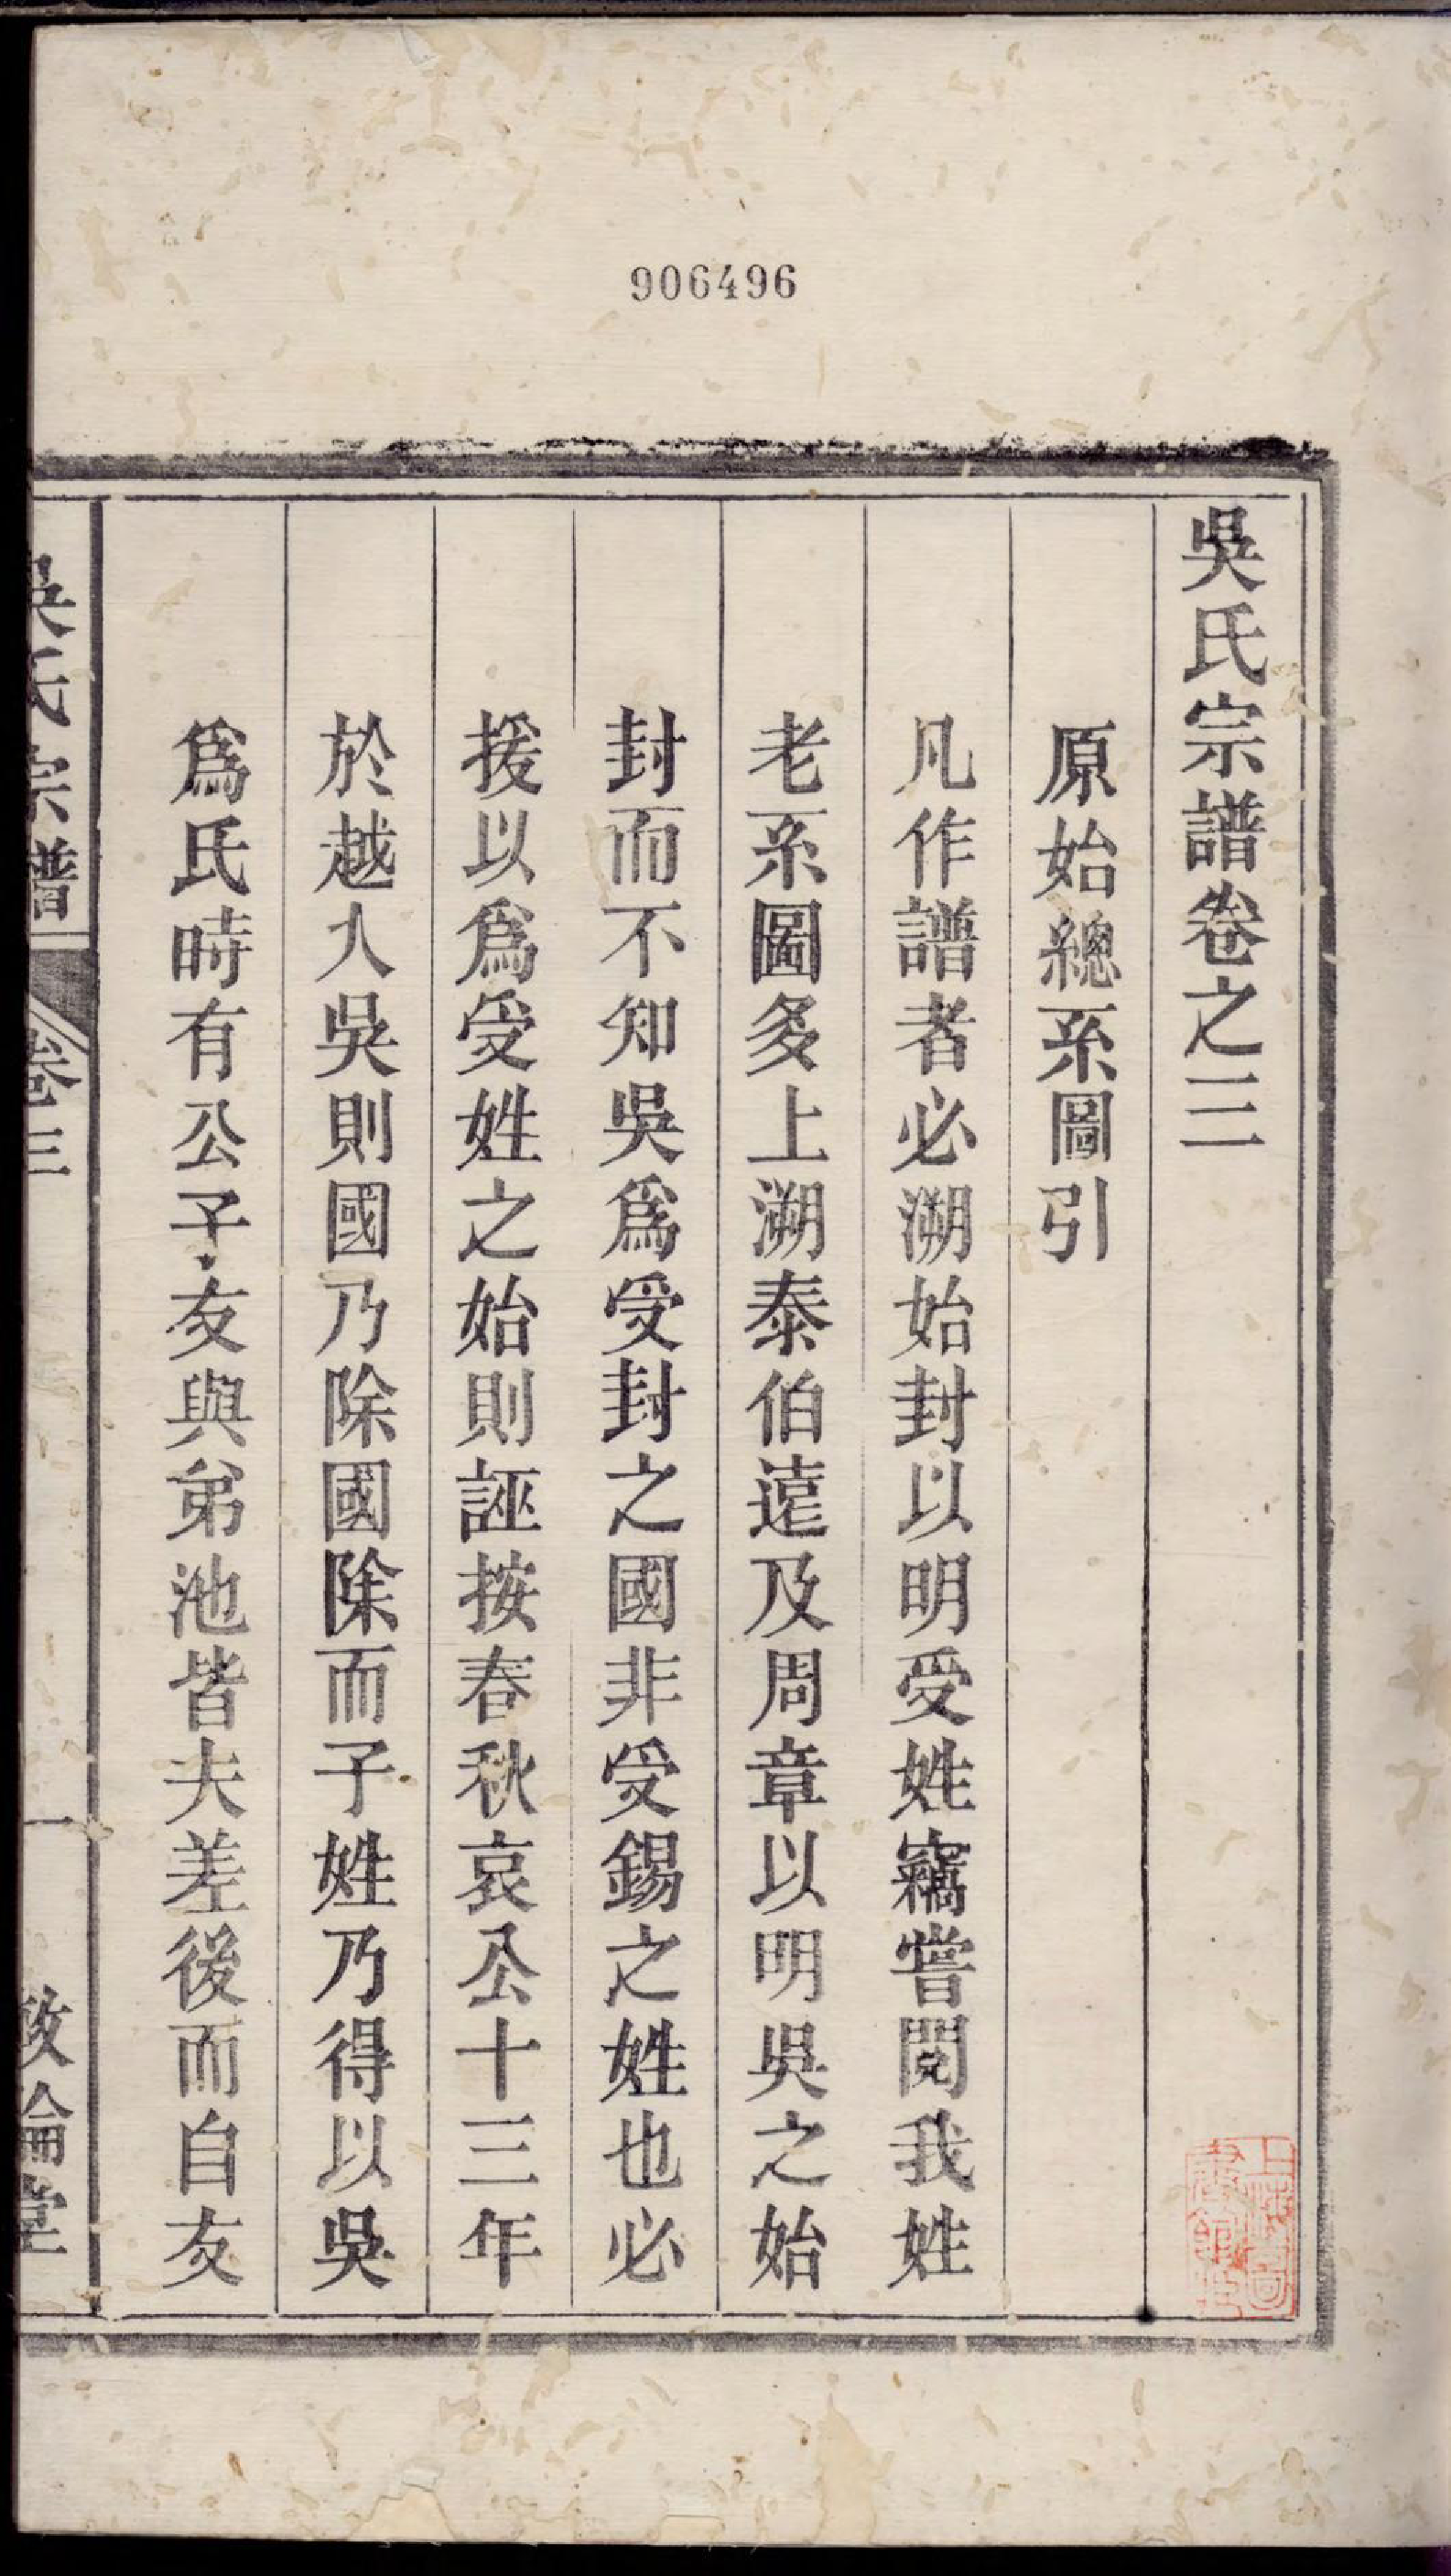 906496
吳氏宗譜卷之三
原始總系圖引
凡作譜者必溯始封以明受姓竊嘗閱我姓
老系圖多上溯泰伯遠及周章以明吳之始
封而不知吳爲受封之國非受錫之姓也必
援以爲受姓之始則誣按春秋哀公十三年
於越入吳則國乃除國除而子姓乃得以吳
爲氏時有公子友與弟池皆夫差後而自友
吳氏宗譜 卷三 一 敦倫堂